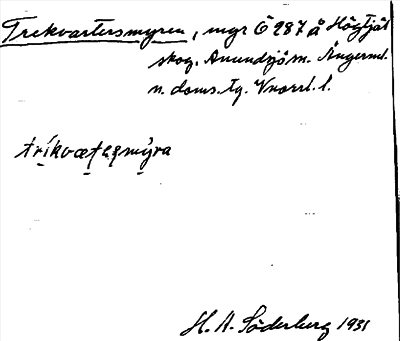 Trekvartersmyren, myr Ö 287 å Högtjäl
skog. Anundsjö sn. Ångerml.
n. doms. tg. Vnorrl. l.
tríkvæteṣmy̆ra
H. A. Söderberg 1931